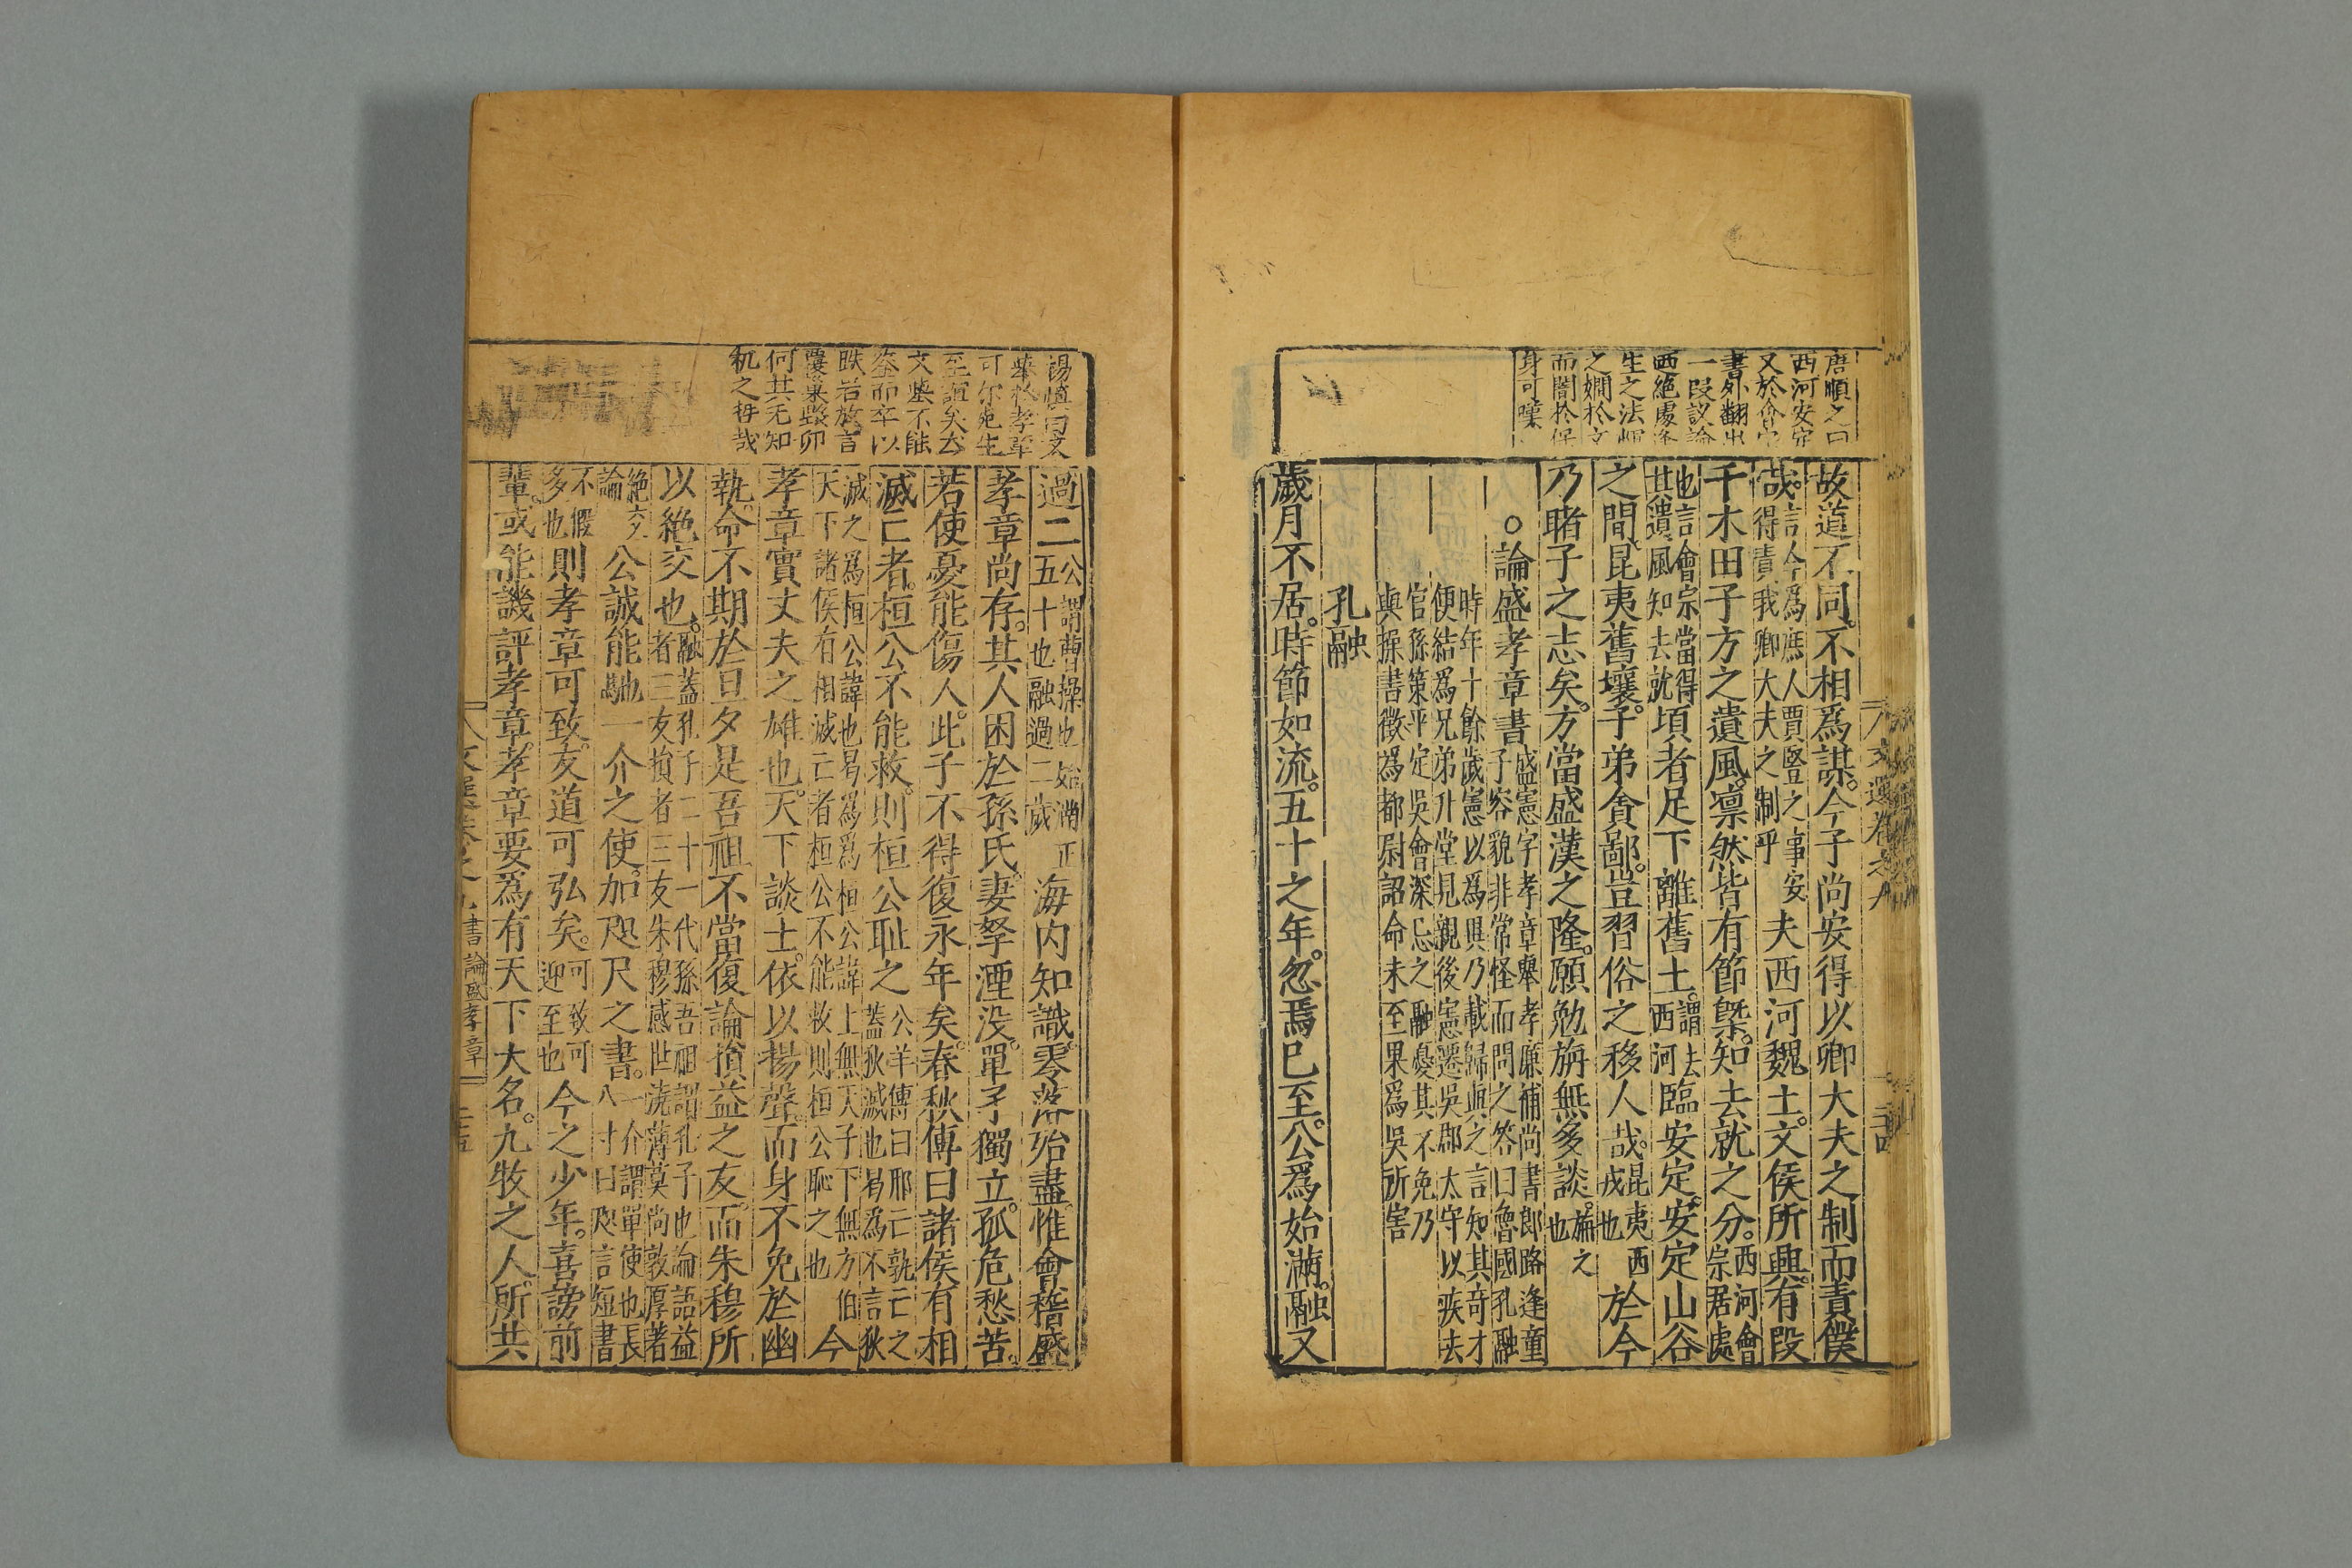 唐順之曰
西河安定
又於會宗
書外翻出
一段議論
西絕處逢
生之法惲
之嫻於文
而闇於保
身可嘆
故道不同不相爲謀。今子尚安得以卿大夫之制而責僕
哉。言今爲庶人賈豎之事安
得責我卿大夫之制乎
夫西河魏土。文侯所興。有段
干木田子方之遺風。凛然皆有節槩。知去就之分。西河會
宗居處
也言會宗當得
其遺風知去就
頃者足下離舊土。謂去
西河
臨安定。安定山谷
之間。昆夷舊壤。子弟貪鄙。豈習俗之移人哉。昆夷西
戎也
於今
乃睹子之志矣。方當盛漢之隆。願勉旃無多談。旃之
也
○論盛孝章書
盛憲字孝章舉孝廉補尚書郎路逢童
子容貌非常怪而問之答曰魯國孔融
時年十餘歲憲以爲異乃載歸與之言知其奇才
便結爲兄弟升堂見親後憲遷吳郡太守以疾去
官孫策平定吳會深忌之融憂其不免乃
與操書徵爲都尉詔命未至果爲吳所害
孔融
歲月不居。時節如流。五十之年。忽焉已至。公爲始滿。融又
文選卷之九
二十四
湯
文
舉於孝章
可
至誼矣
文舉不能
容而卒以
昳若放言
覆巢毀卵
何其无知
机之哲哉
過二
公謂曹操也始滿正
五十也融過二歲
海内知識。零落殆盡。惟會稽盛
孝章尚存。其人困於孫氏。妻孥湮没。單孑獨立。孤危愁苦。
若使憂能傷人。此子不得復永年矣。春秋傳曰諸侯有相
滅亡者。桓公不能救。則桓公耻之
公羊傳曰邢亡孰亡之
蓋狄滅也曷爲不言狄
滅之爲桓公諱也曷爲爲桓公諱上無天子下無方伯
天下諸侯有相滅亡者桓公不能救則桓公恥之也
今
孝章實丈夫之雄也。天下談士。依以揚聲。而身不免於幽
執。命不期於旦夕是吾祖不當復論損益之友。而朱穆所
以絶交也。
融蓋孔子二十一代孫吾祖謂孔子也論語益
者三友損者三友朱穆感世澆薄莫尚敦厚著
絶交
論
公誠能馳一介之使。加咫尺之書。
一介謂單使也長
八寸曰咫言短書
不假
多也
則孝章可致。友道可弘矣。
可致可
迎至也
今之少年。喜謗前
輩。或能譏評孝章。孝章要爲有天下大名。九牧之人。所共
書 論盛孝章
二十五